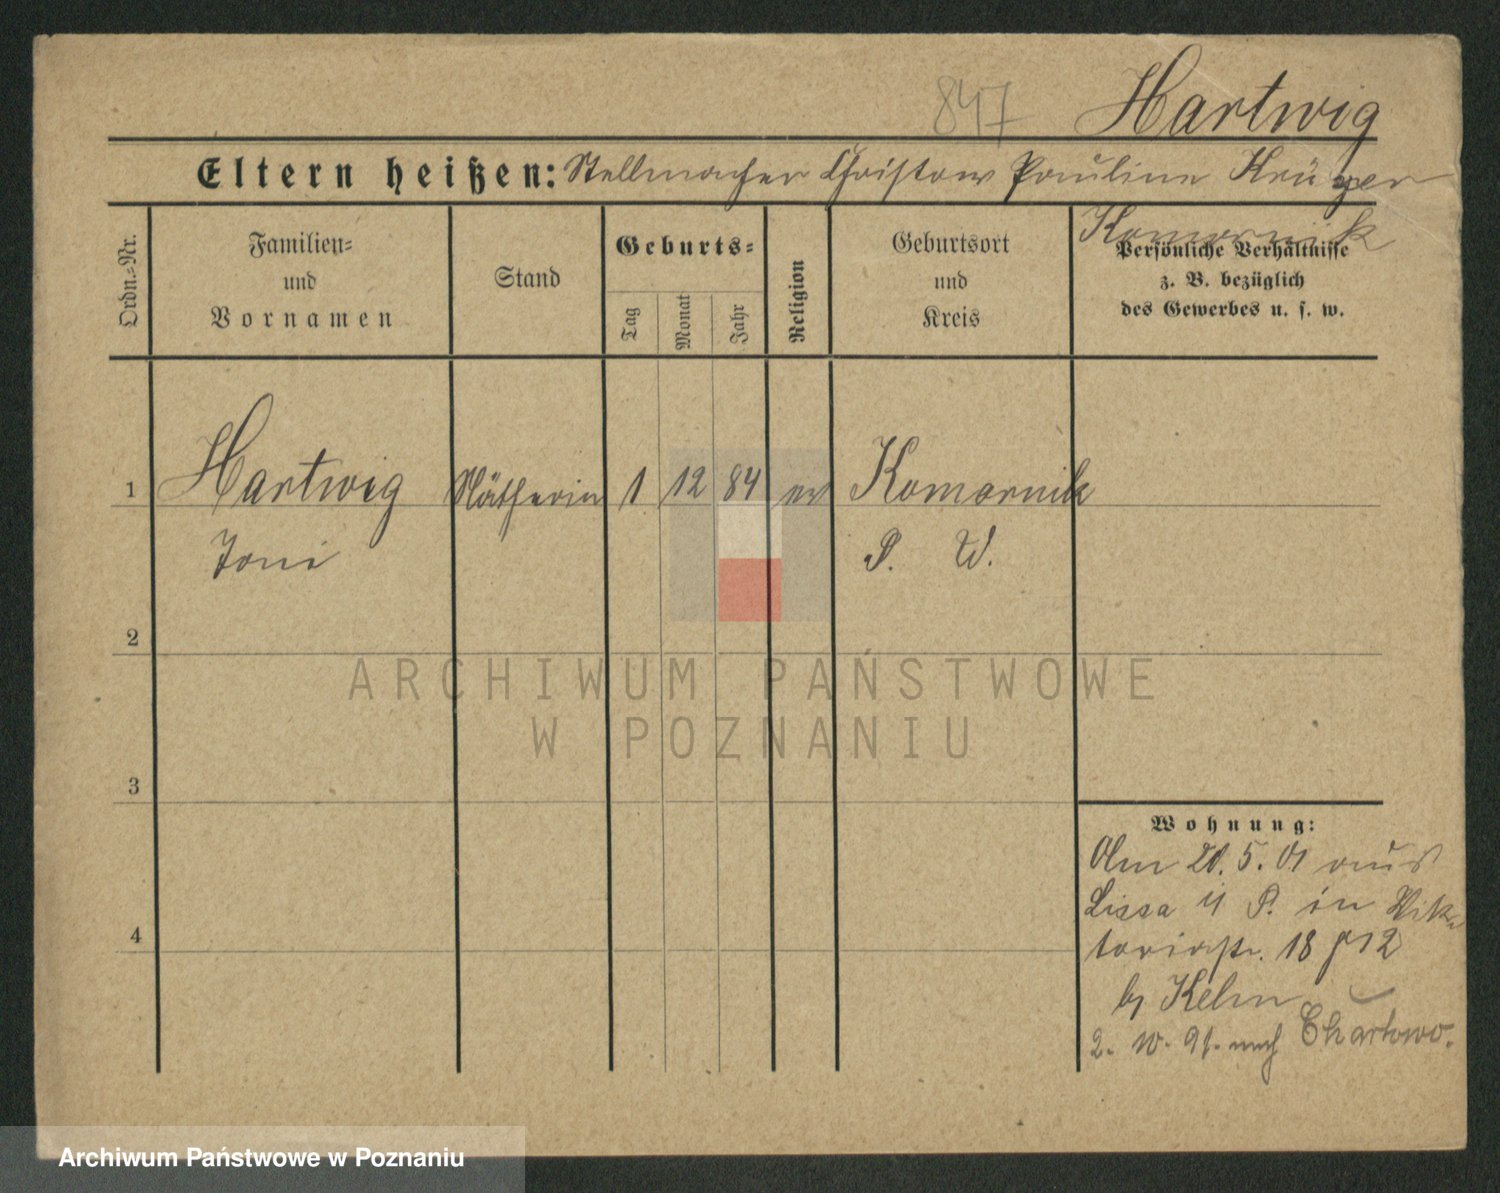 847 Hartwig
Eltern heißen: Stellmacher Christow Pauline Krüger
Komornik
Ordn.=Nr.
Familien=
und
Vornamen
Stand
Geburts=
Tag
Monat
Jahr
Religion
Geburtsort
und
Kreis
Persönliche Verhältnisse
z. B. bezüglich
des Gewerbes u. s. w.
1 Hartwig Nätherin 1 12 84 ev Komornik
Toni P. W.
2
3
4
ARCHIWUM PAŃSTWOWE
W POZNANIU
Wohnung:
Am 20. 5. 01 aus
Lissa i/ P. in Vik-
toriastr. 18 12
b/ Kelm
2. 10. 91. nach Chartowo.
Archiwum Państwowe w Poznaniu